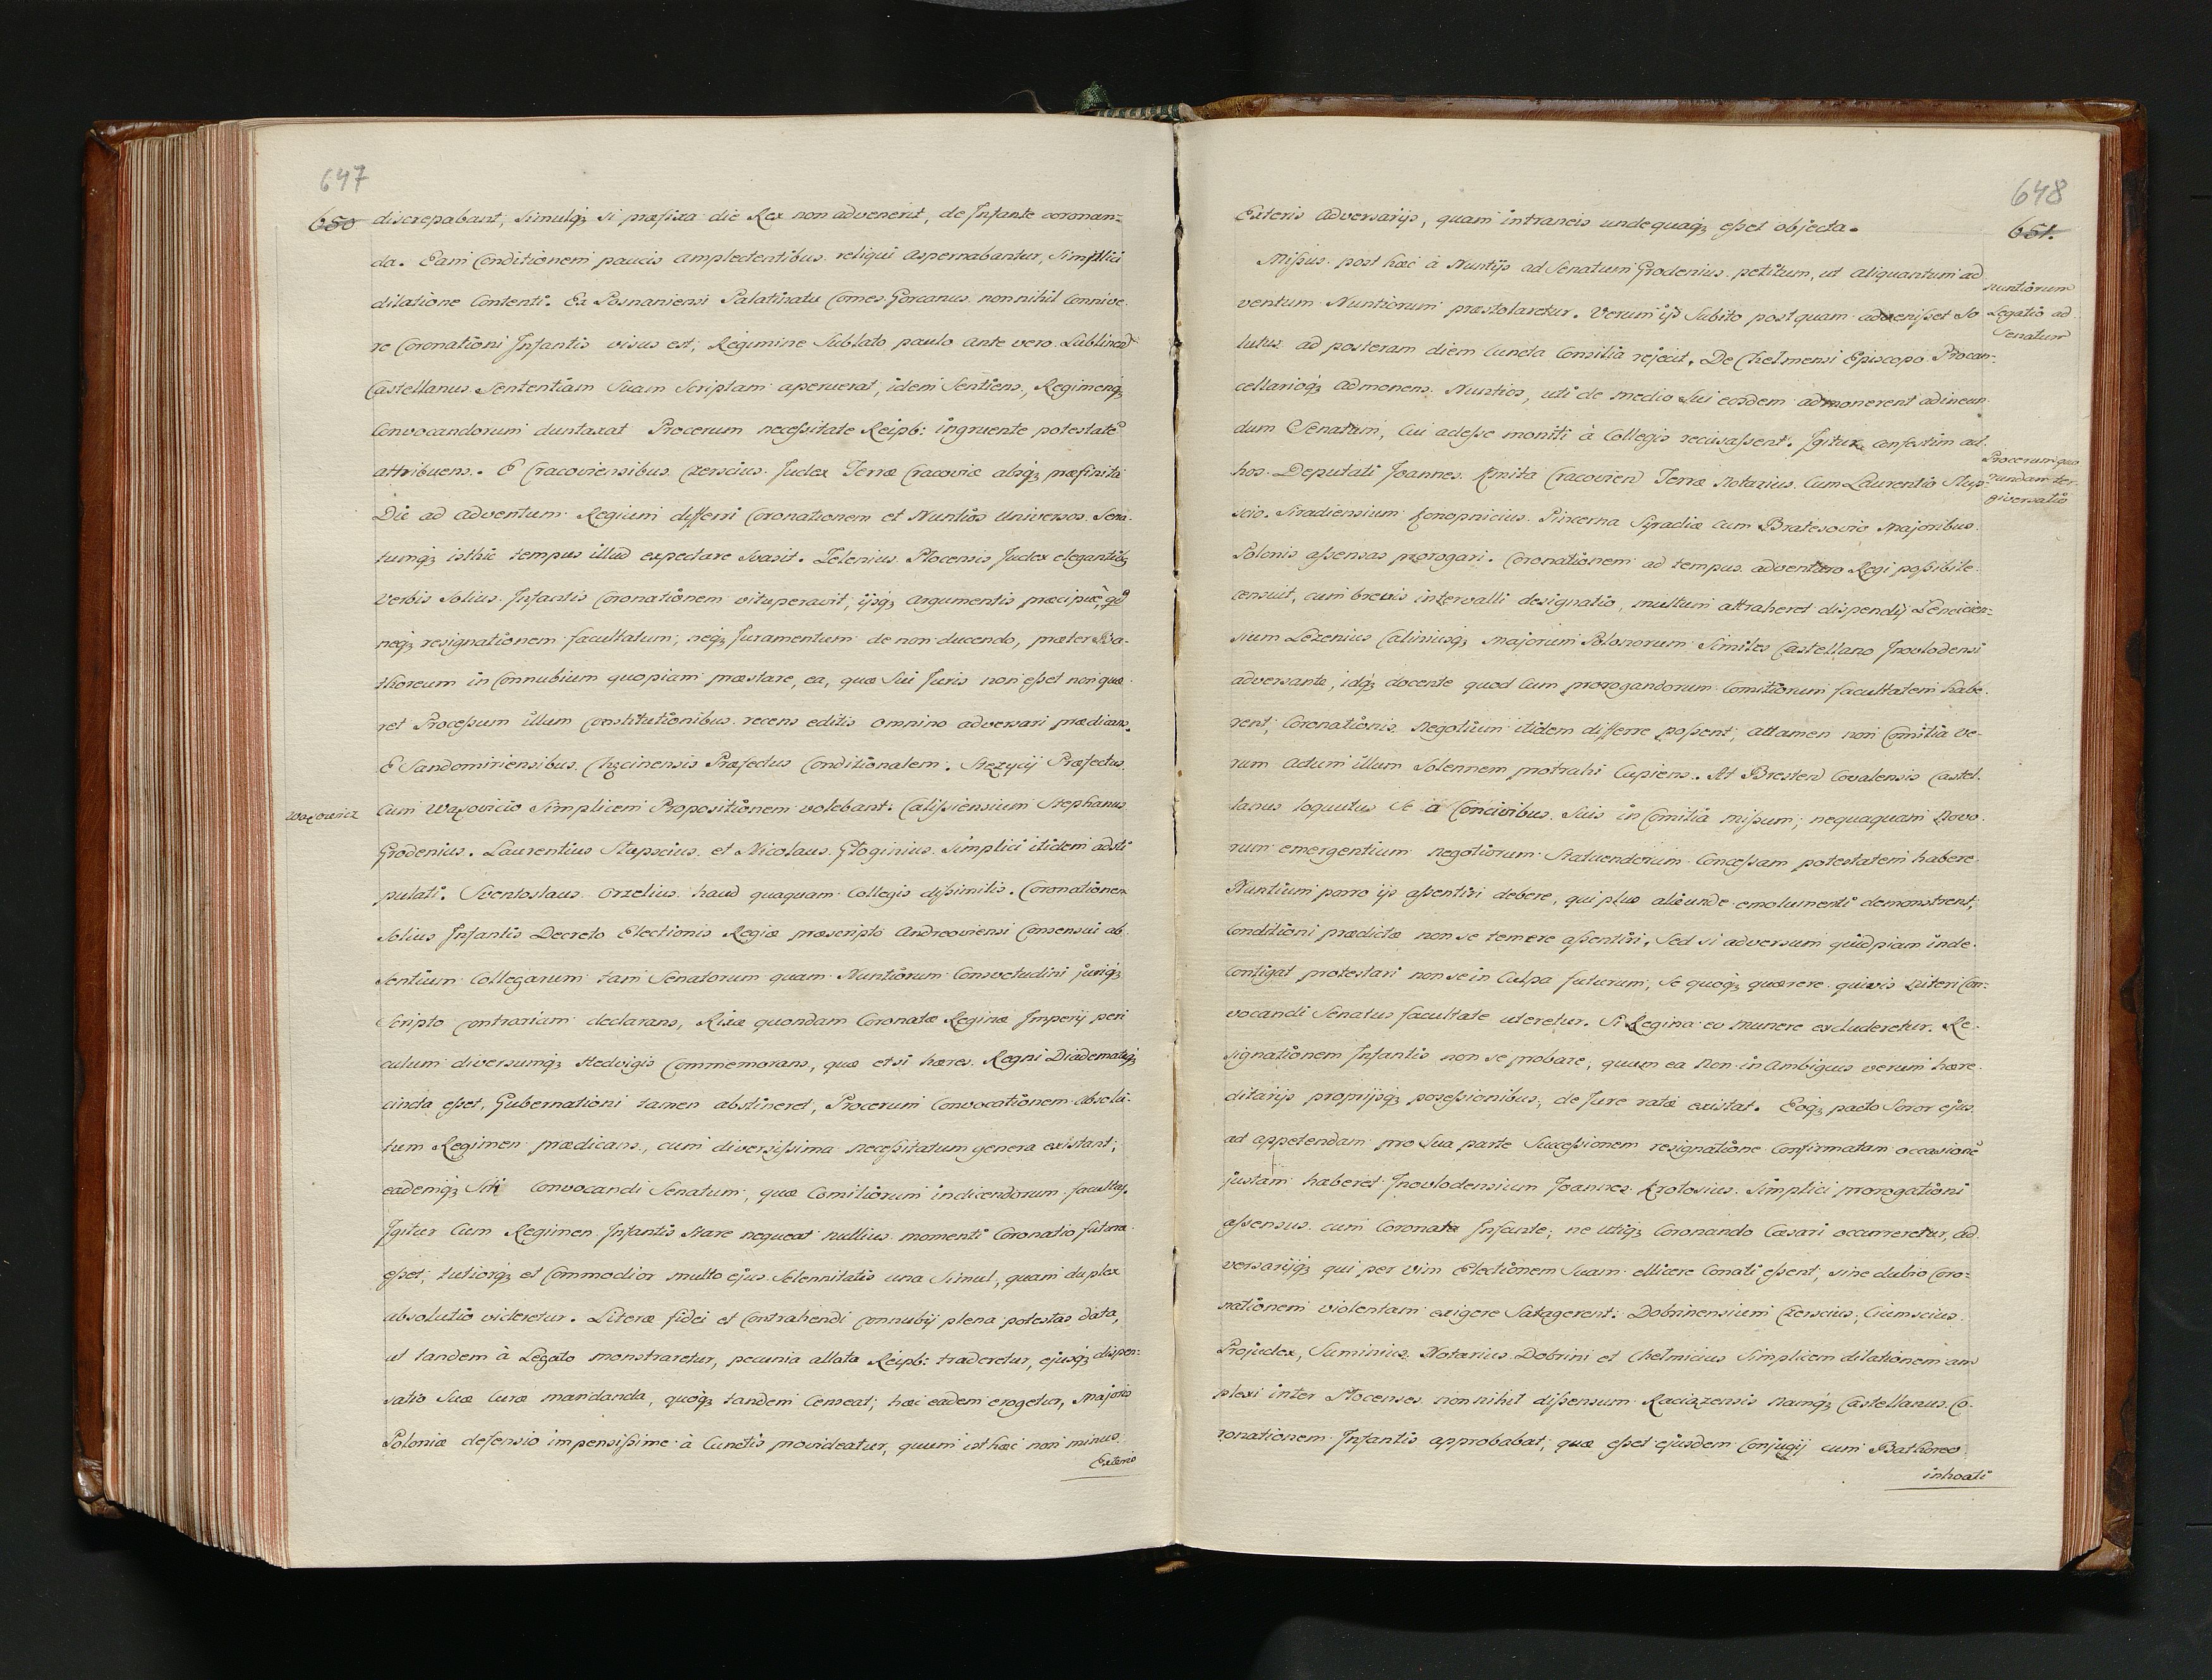 647
650
discrepabant, simulq3 si præfixa die Rex non advenerit, de Infante coronan=
da. Eam Conditionem paucis amplectentibus reliqui aspernabantur, Simplici
dilatione Contenti. Ex Posnaniensi Palatinatu Comes Gorcanus nonnihil Connive-
re Coronationi Infantis visus est; Regimine Sublato paulo ante vero Lublinen
Castellanus Sententiam Suam Scriptam aperuerat, idem Sentiens, Regimenq3
Convocandorum duntaxat Procerum necessitate Reipb: ingruente potestate
attribuens. E Cracoviensibus Czerscius Judex Terræ Cracoviæ absq3 præfinita
Die ad adventum Regium differri Coronationem et Nuntios Universos Sena-
tumq3 isthic tempus illud expectare Svasit. Zelenius Plocensis Judex elegantib3
Verbis Solius Infantis Coronationem vituperavit, ijsq3 argumentis præcipuè, qd
neq3 resignationem facultatum, neq3 Juramentum de non ducendo, præter Ba-
thoreum in Connubium quopiam præstare, ea, quæ Sui Juris non esset non quæ-
ret Processum illum Constitutionibus recens editis omnino adversari prædicans.
E Sandomiriensibus Chęcinensis Præfectus Conditionalem. Stęzycij Præfectus
Wąsowicz
Cum Wąsovicio Simplicem Propositionem volebant. Calissiensium Stephanus
Grodenius. Laurentius Slupscius et Nicolaus Gloginius Simplici itidem adsti
pulati. Sventoslaus Orzelius haud quaquam Collegis dissimilis. Coronationem
Solius Infantis Decreto Electionis Regiæ præscripto Andreoviensi Consensui ab
sentium Collegarum tam Senatorum quam Nuntiorum Consvetudini juriq3
Scripto contrariam declarans, Rixæ quondam Coronatæ Reginæ Imperij peri
culum diversumq3 Hedvigis Commemorans, quæ etsi hæres Regni Diadematiq3
cincta esset, Gubernationi tamen abstineret, Procerum Convocationem absolu-
tum Regimen prædicans, cum diversissima necessitatum genera existant;
eademq3 Convocandi Senatum, quæ Comitiorum indicendorum facultas.
Igitur Cum Regimen Infantis Stare nequeat nullius momenti Coronatio futura
esset; tutiorq3 et Commodior multo ejus Solennitatis una Simul, quam duplex
absolutio videretur. Literæ fidei et Contrahendi Connubij plena potestas data,
ut tandem à Legato monstraretur, pecunia allata Reipb: traderetur, ejusq3 dispen=
satio Suæ Curæ mandanda, quoq3 tandem Censeat; hæc eadem erogetur, Majoris
Poloniæ defensio impensissime à Cunctis provideatur, quum isthæc non minus
Exteris
648
651.
Exteris adversarijs, quam intraneis undequaq3 esset objecta.
Missus post hæc à Nuntijs ad Senatum Grodenius petitum, ut aliquantum ad
Nuntiorum
Legatio ad
Senatum
ventum Nuntiorum præstolaretur. Verum is Subito postquam advenisset So
lutus ad posteram diem Cuncta Consilia rejecit. De Chelmensi Episcopo Procan-
cellarioq3 admonens Nuntios, uti de medio Sui eosdem admonerent ad ineun
dum Senatum, Cui adesse moniti à Collegis recusassent. Igitur confestim ad
Procerum quo
rundam ter-
giversatio
hos Deputati Joannes Kmita Cracovien Terræ Notarius Cum Laurentio Slup-
scio. Siradiensium Konopnicius Pincerna Syradiæ cum Bratesovio Majoribus
Polonis assensas prorogari. Coronationem ad tempus adventaro Regi possibile
censuit, cum brevis intervalli designatio, multum attraheret dispendij Lencicien=
sium Lezenius Caliniusq3 Majorum Polonorum Similes Castellano Inovlodensi
adversante, idq3 docente quod Cum prorogandorum Comitiorum facultatem habe-
rent, Coronationis negotium itidem differre possent; attamen non Comitia ve-
rum actum illum Solennem protrahi Cupiens. At Bresten Covalensis Castel.
lanus loquutus Se à Concivibus Suis in Comitia missum; nequaquam novo-
rum emergentium negotiorum Statuendorum Concessam potestatem habere
Nuntium porro ijs assentiri debere, qui plus aliunde emolumenti demonstrent,
Conditioni prædictæ non se temere assentiri, Sed si adversum quidpiam inde
Contigat protestari non se in Culpa futurum, Se quoq3 quærere quivis Con=
vocandi Senatus facultate uteretur. Si Regina eo munere excluderetur. Re-
signationem Infantis non se probare, quum ea non in ambiguis verum hære-
ditarijs proprijsq3 posessionibus, de Jure rata existat. Eoq3 pacto Soror ejus
ad appetendam pro Sua parte Successionem resignatione Confirmatam occasione
justam haberet Inovlodensium Joannes Krotosius Simplici prorogationi
assensus cum Coronata Infante; ne utiq3 Coronando Cæsari occurreretur, ad
versarijq3 qui per vim Electionem Suam ellicere Conati essent, sine dubio Coro=
nationem violentam exigere Satagerent. Dobrinensium Czerscius, Ciemscius
Projudex, Suminius Notarius Dobrini et Chelmicius Simplicem dilationem am
plexi inter Plocenses nonnihil dissensum Raciązensis namq3 Castellanus Co-
ronationem Infantis approbabat, quæ esset ejusdem Conjugij cum Bathoreo
inhoati